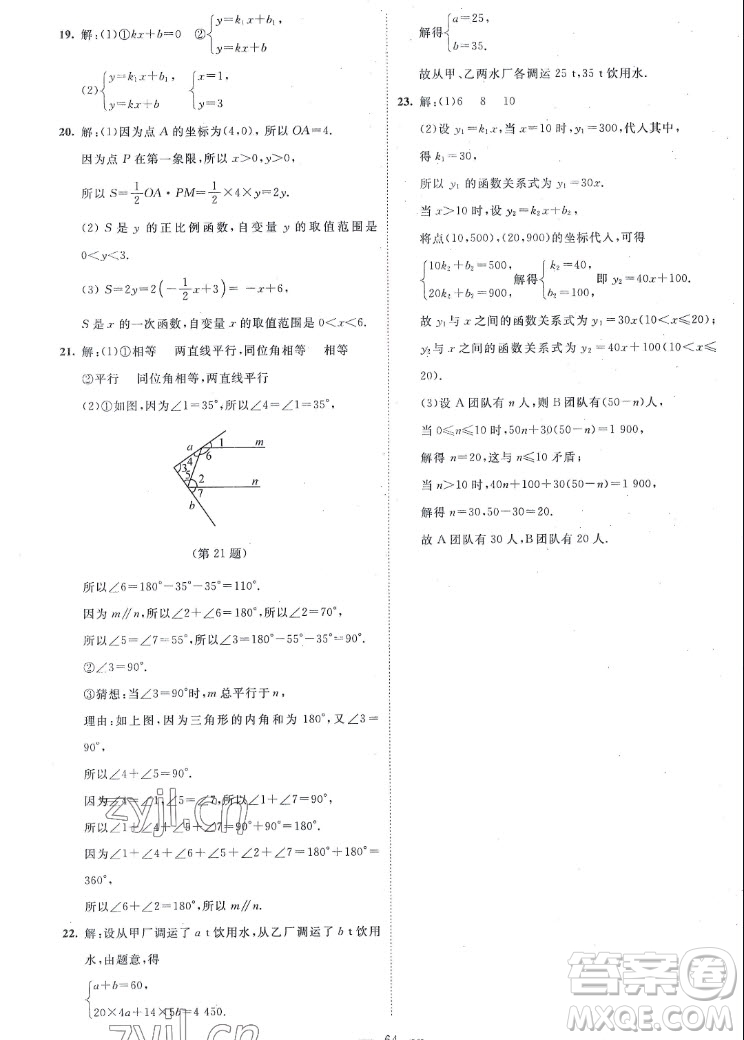 19. 解:(1)①kx+b=0 ②{y=k₁x+b₁,
y=kx+b
(2){y=k₁x+b₁, {x=1,
y=kx+b y=3
20. 解:(1)因为点 A 的坐标为(4,0),所以 OA=4.
因为点 P 在第一象限,所以 x>0,y>0,
所以 S=1/2 OA·PM=1/2×4×y=2y.
(2) S 是 y 的正比例函数,自变量 y 的取值范围是
0<y<3.
(3) S=2y=2(-1/2 x+3)=-x+6,
S 是 x 的一次函数,自变量 x 的取值范围是 0<x<6.
21. 解:(1)①相等 两直线平行,同位角相等 相等
②平行 同位角相等,两直线平行
(2)①如图,因为∠1=35°,所以∠4=∠1=35°,
a 1 m
4 6
3
5 2 n
7
b
(第 21 题)
所以∠6=180°-35°-35°=110°.
因为 m∥n,所以∠2+∠6=180°,所以∠2=70°,
所以∠5=∠7=55°,所以∠3=180°-55°-35°=90°.
②∠3=90°.
③猜想:当∠3=90°时,m 总平行于 n,
理由:如上图,因为三角形的内角和为 180°,又∠3=
90°,
所以∠4+∠5=90°.
因为∠4=∠1,∠5=∠7,所以∠1+∠7=90°,
所以∠1+∠4+∠5+∠7=90°+90°=180°.
因为∠1+∠4+∠6+∠5+∠2+∠7=180°+180°=
360°,
所以∠6+∠2=180°,所以 m∥n.
22. 解:设从甲厂调运了 a t 饮用水,从乙厂调运了 b t 饮用
水,由题意,得
{a+b=60,
20×4a+14×15b=4 450.
解得{a=25,
b=35.
故从甲、乙两水厂各调运 25 t,35 t饮用水.
23. 解:(1)6 8 10
(2)设 y₁=k₁x,当 x=10 时,y₁=300,代人其中,
得 k₁=30,
所以 y₁ 的函数关系式为 y₁=30x.
当 x>10 时,设 y₂=k₂x+b₂,
将点(10,500),(20,900)的坐标代人,可得
{10k₂+b₂=500, 解得{k₂=40, 即 y₂=40x+100.
20k₂+b₂=900 b₂=100,
故 y₁ 与 x 之间的函数关系式为 y₁=30x(0≤x≤10);
y₂ 与 x 之间的函数关系式为 y₂=40x+100(10<x≤
20).
(3)设 A 团队有 n 人,则 B 团队有(50-n)人,
当 0≤n≤10 时,50n+30(50-n)=1 900,
解得 n=20,这与 n≤10 矛盾;
当 n>10 时,40n+100+30(50-n)=1 900,
解得 n=30,50-30=20.
故 A 团队有 30 人,B 团队有 20 人.
zyjl.cn
zyjl.cn
答案卷
MXQE.COM
64